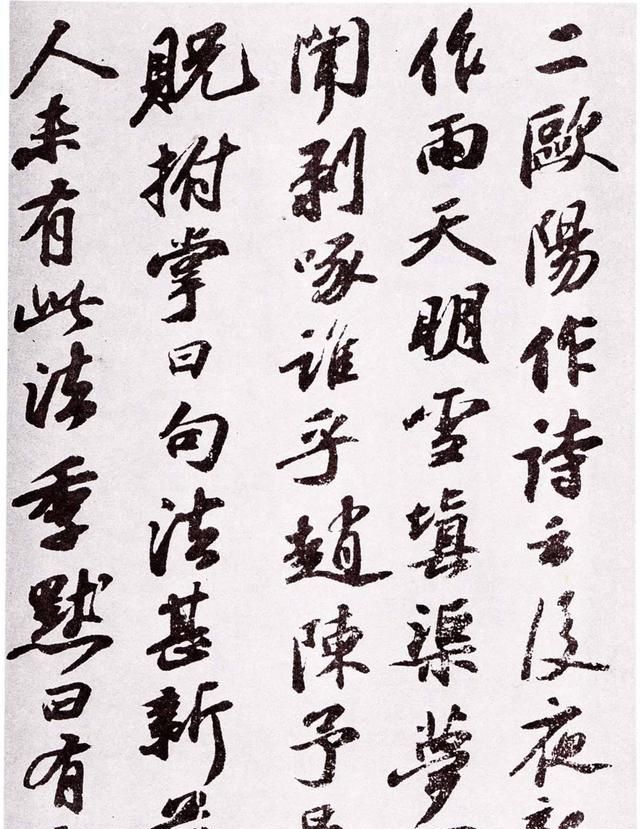 二歐陽作詩云後夜
作雨天明雪填渠夢
聞剥啄誰乎趙陳予
貺拊掌曰句法甚新
人未有此法季默曰有